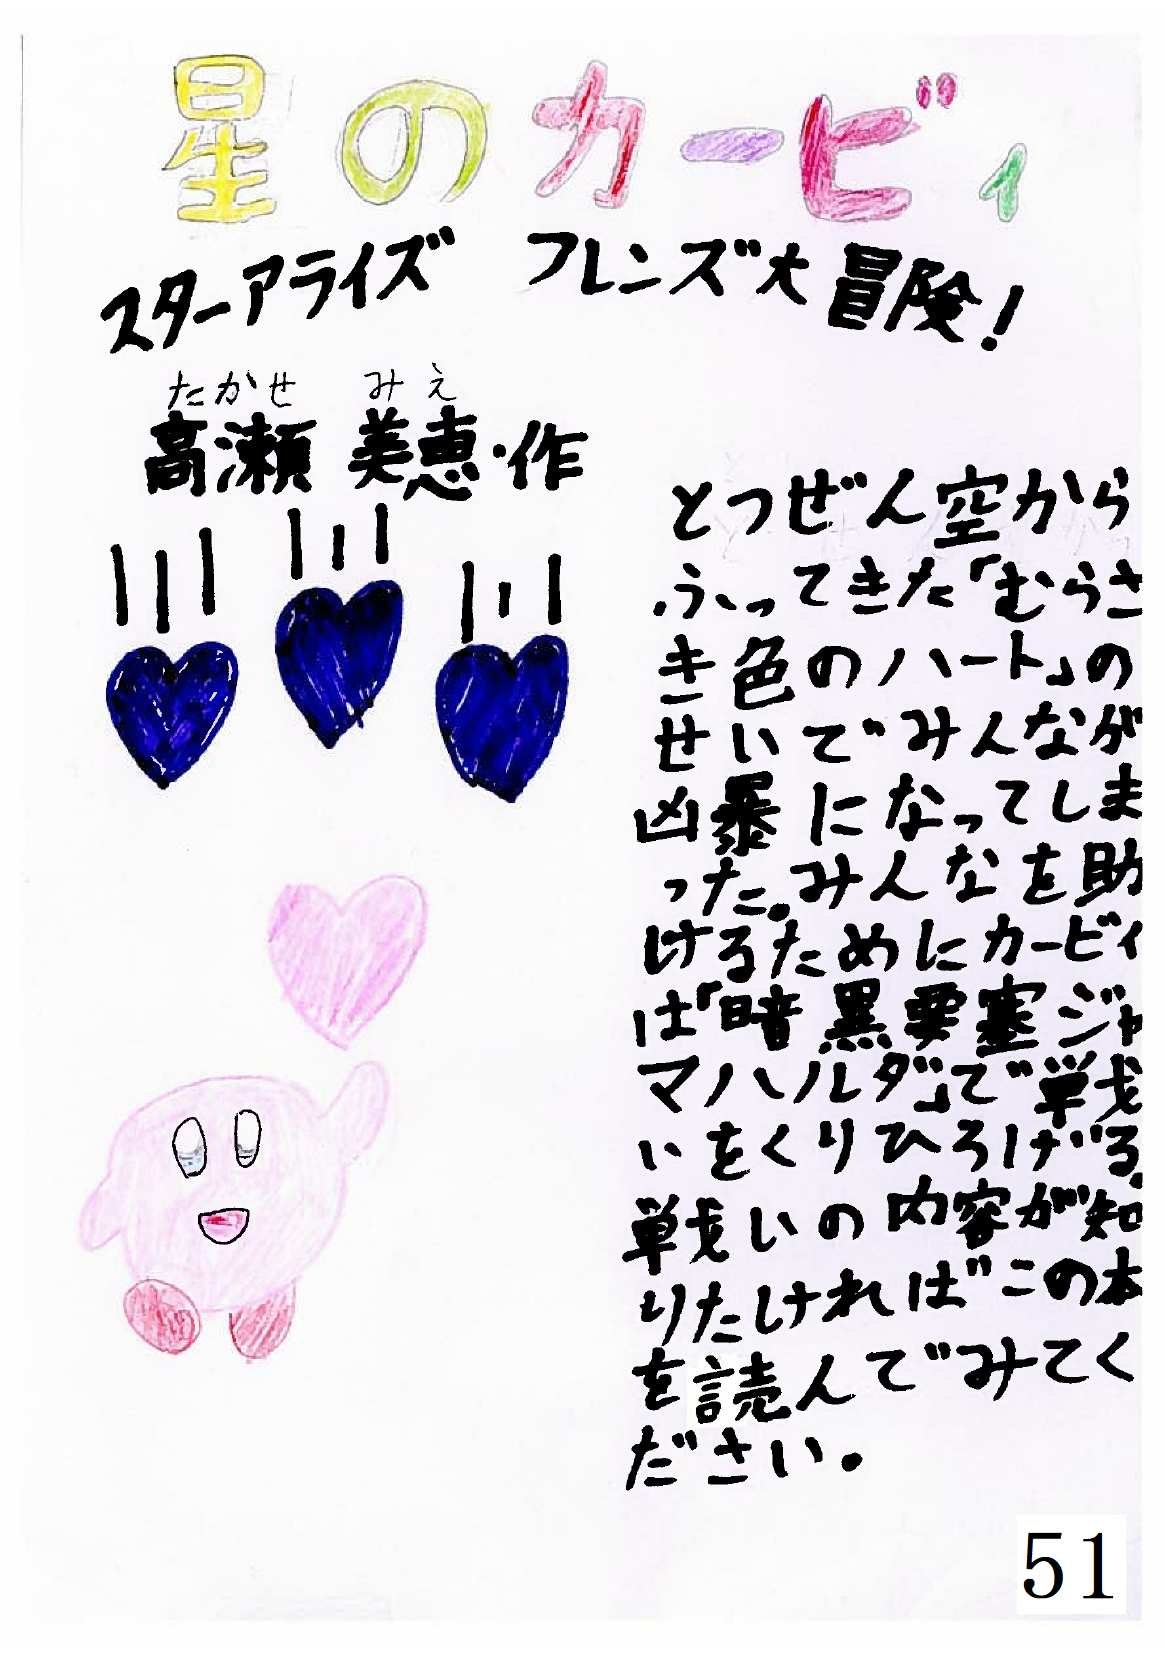 星のカービィ
スターアライズ フレンズ大冒険!
たかせ みえ
高瀬 美恵・作
とつぜん空から
ふってきた「むらさ
き色のハート」の
せいでみんなが
凶暴になってしま
った。みんなを助
けるためにカービィ
は「暗黒要塞ジャ
マハルダ」で戦
いをくりひろげる。
戦いの内容が知
りたければこの本
を読んでみてく
ださい。
51